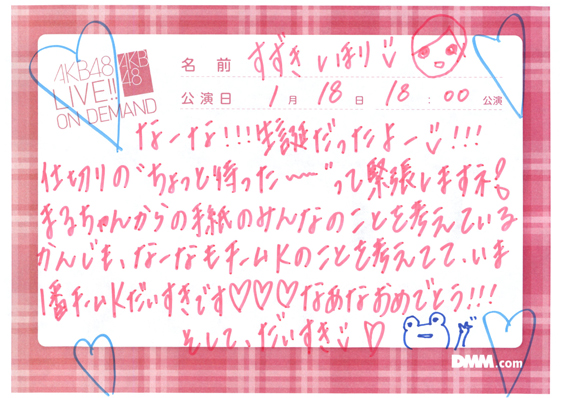 AKB48
LIVE!!
ON DEMAND
AKB
48
名前 すずきしほり
公演日 1月18日 18:00公演
なーな!!!生誕だったよー!!!
仕切りの"ちょっと待った〜〜"って緊張しますネ!
まりちゃんからの手紙のみんなのことを考えている
かんじも、なーなもチームKのことを考えてて、いま
1番チームKだいすきです♡♡♡なあなおめでとう!!!
そして、だいすき♡
DMM.com